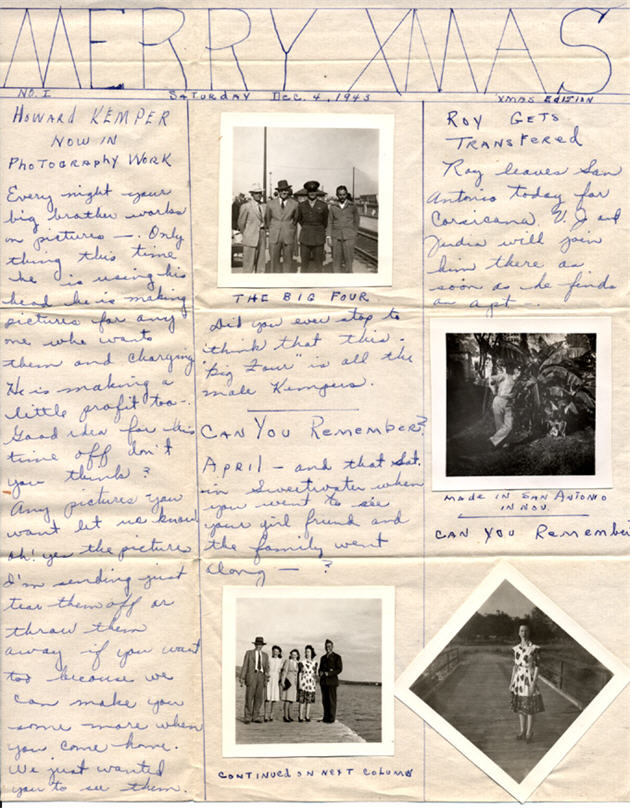 MERRY XMAS
NO. I
SATURDAY DEC. 4, 1943
XMAS EDITION
HOWARD KEMPER
NOW IN
PHOTOGRAPHY WORK
Every night your
big brother works
on pictures —. Only
thing this time
he is using his
head he is making
pictures for any
one who wants
them and charging
He is making a
little profit too —.
Good idea for his
time off don't
you think?
Any pictures you
want let us know
oh! yes the pictures
I'm sending just
tear them off or
throw them
away if you want
too because we
can make you
some more when
you come home.
We just wanted
you to see them.
THE BIG FOUR
Did you ever stop to
think that this
"Big Four" is all the
male Kempers.
CAN YOU REMEMBER?
APRIL — and that Sat.
in Sweetwater when
you went to see
your girl friend and
the family went
along — ?
CONTINUED ON NEXT COLUMN
ROY GETS
TRANSFERED
Roy leaves San
Antonio today for
Corsicana. V.J. and
Judia will join
him there as
soon as he finds
an apt —.
MADE IN SAN ANTONIO
IN NOV.
CAN YOU Remember